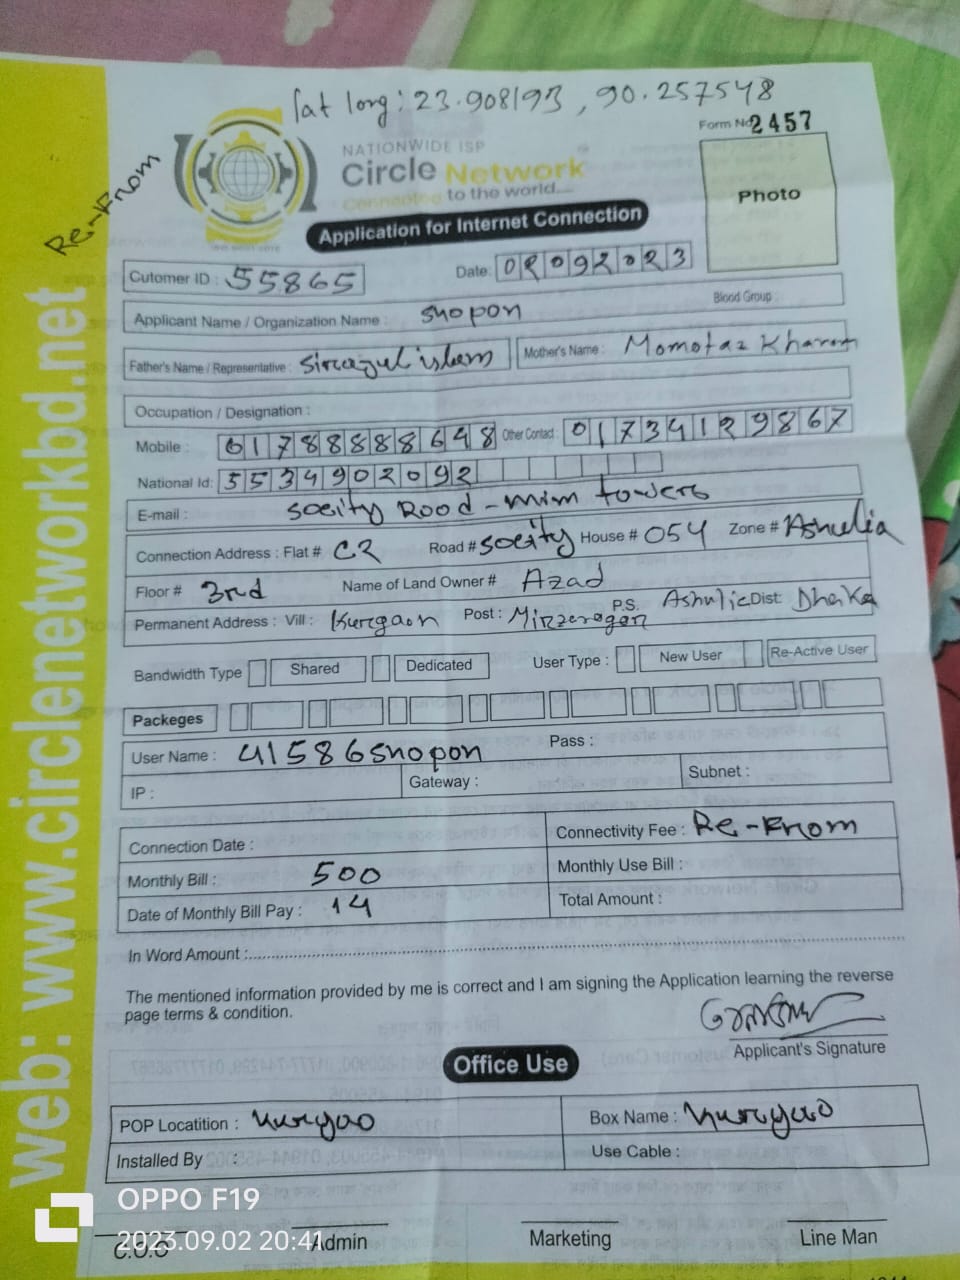 lat long: 23.908193, 90.257548
Form No 2457
Re-Knom
NATIONWIDE ISP
Circle Network
Connected to the world....
Photo
Application for Internet Connection
Cutomer ID : 55865
Date: 02092023
Blood Group :
Applicant Name / Organization Name : snopon
Father's Name / Representative : Sirazul islam Mother's Name : Momotaz Khanom
Occupation / Designation :
Mobile : 01788888648 Other Contact : 01734129867
National Id: 5534902092
E-mail : Socity Rood - mim towers
Connection Address : Flat # C2 Road # Socity House # 054 Zone # Ashulia
Floor # 3rd Name of Land Owner # Azad
Permanent Address : Vill : Kurgaon Post : P.S. Ashulia Dist: Dhaka
Bandwidth Type Shared Dedicated User Type : New User Re-Active User
Packeges
User Name : 41586snopon Pass :
IP : Gateway : Subnet :
Connection Date : Connectivity Fee : Re-Knom
Monthly Bill : 500 Monthly Use Bill :
Date of Monthly Bill Pay : 14 Total Amount :
In Word Amount :
The mentioned information provided by me is correct and I am signing the Application learning the reverse
page terms & condition.
Applicant's Signature
Office Use
POP Locatition : Kurgao Box Name : Kurgao
Installed By : Use Cable :
C.O.O Admin Marketing Line Man
web: www.circlenetworkbd.net
OPPO F19
2023.09.02 20:41